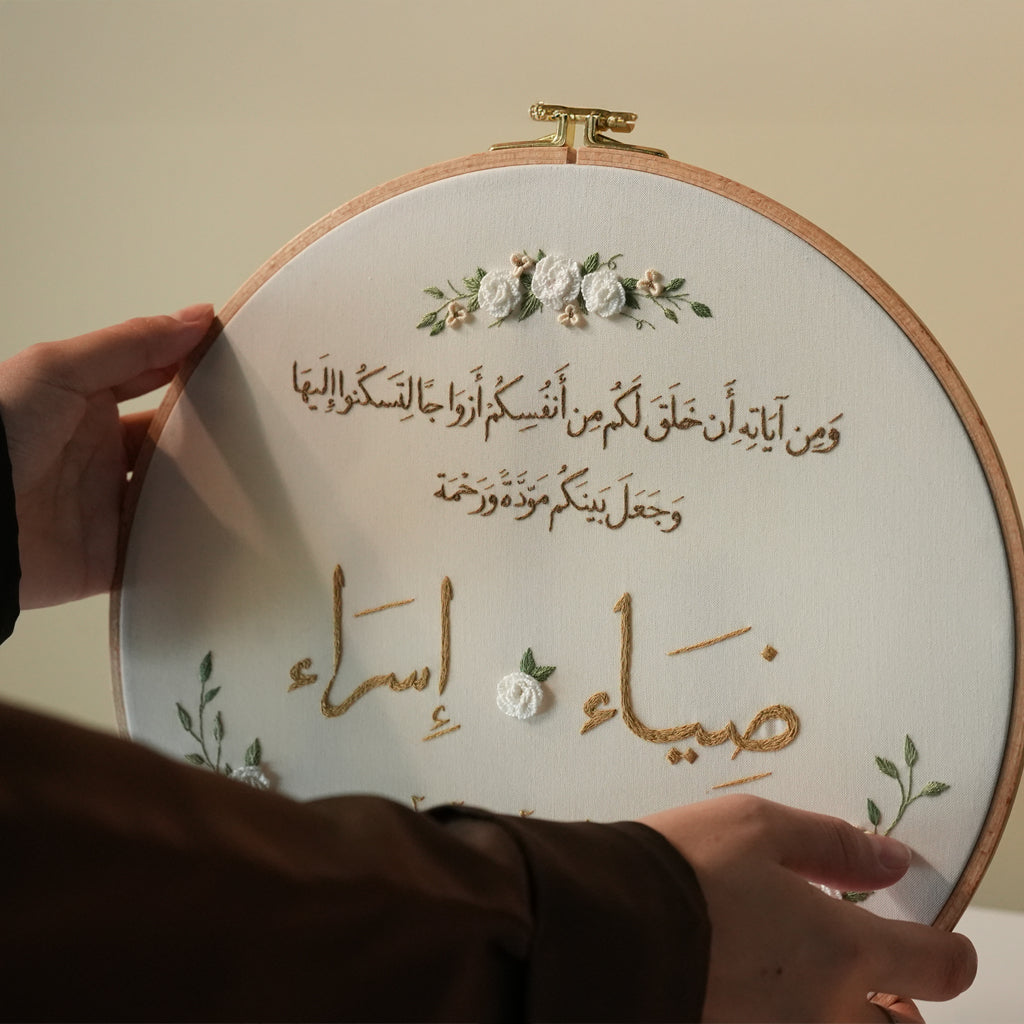 وَمِن آيَاتِهِ أَن خَلَقَ لَكُم مِن أَنفُسِكُمْ أَزوَاجًا لِتَسكُنوا إِلَيهَا
وَجَعَلَ بَينَكُم مَوَدَّةً وَرَحْمَة
ضِيَاء إِسرَاء